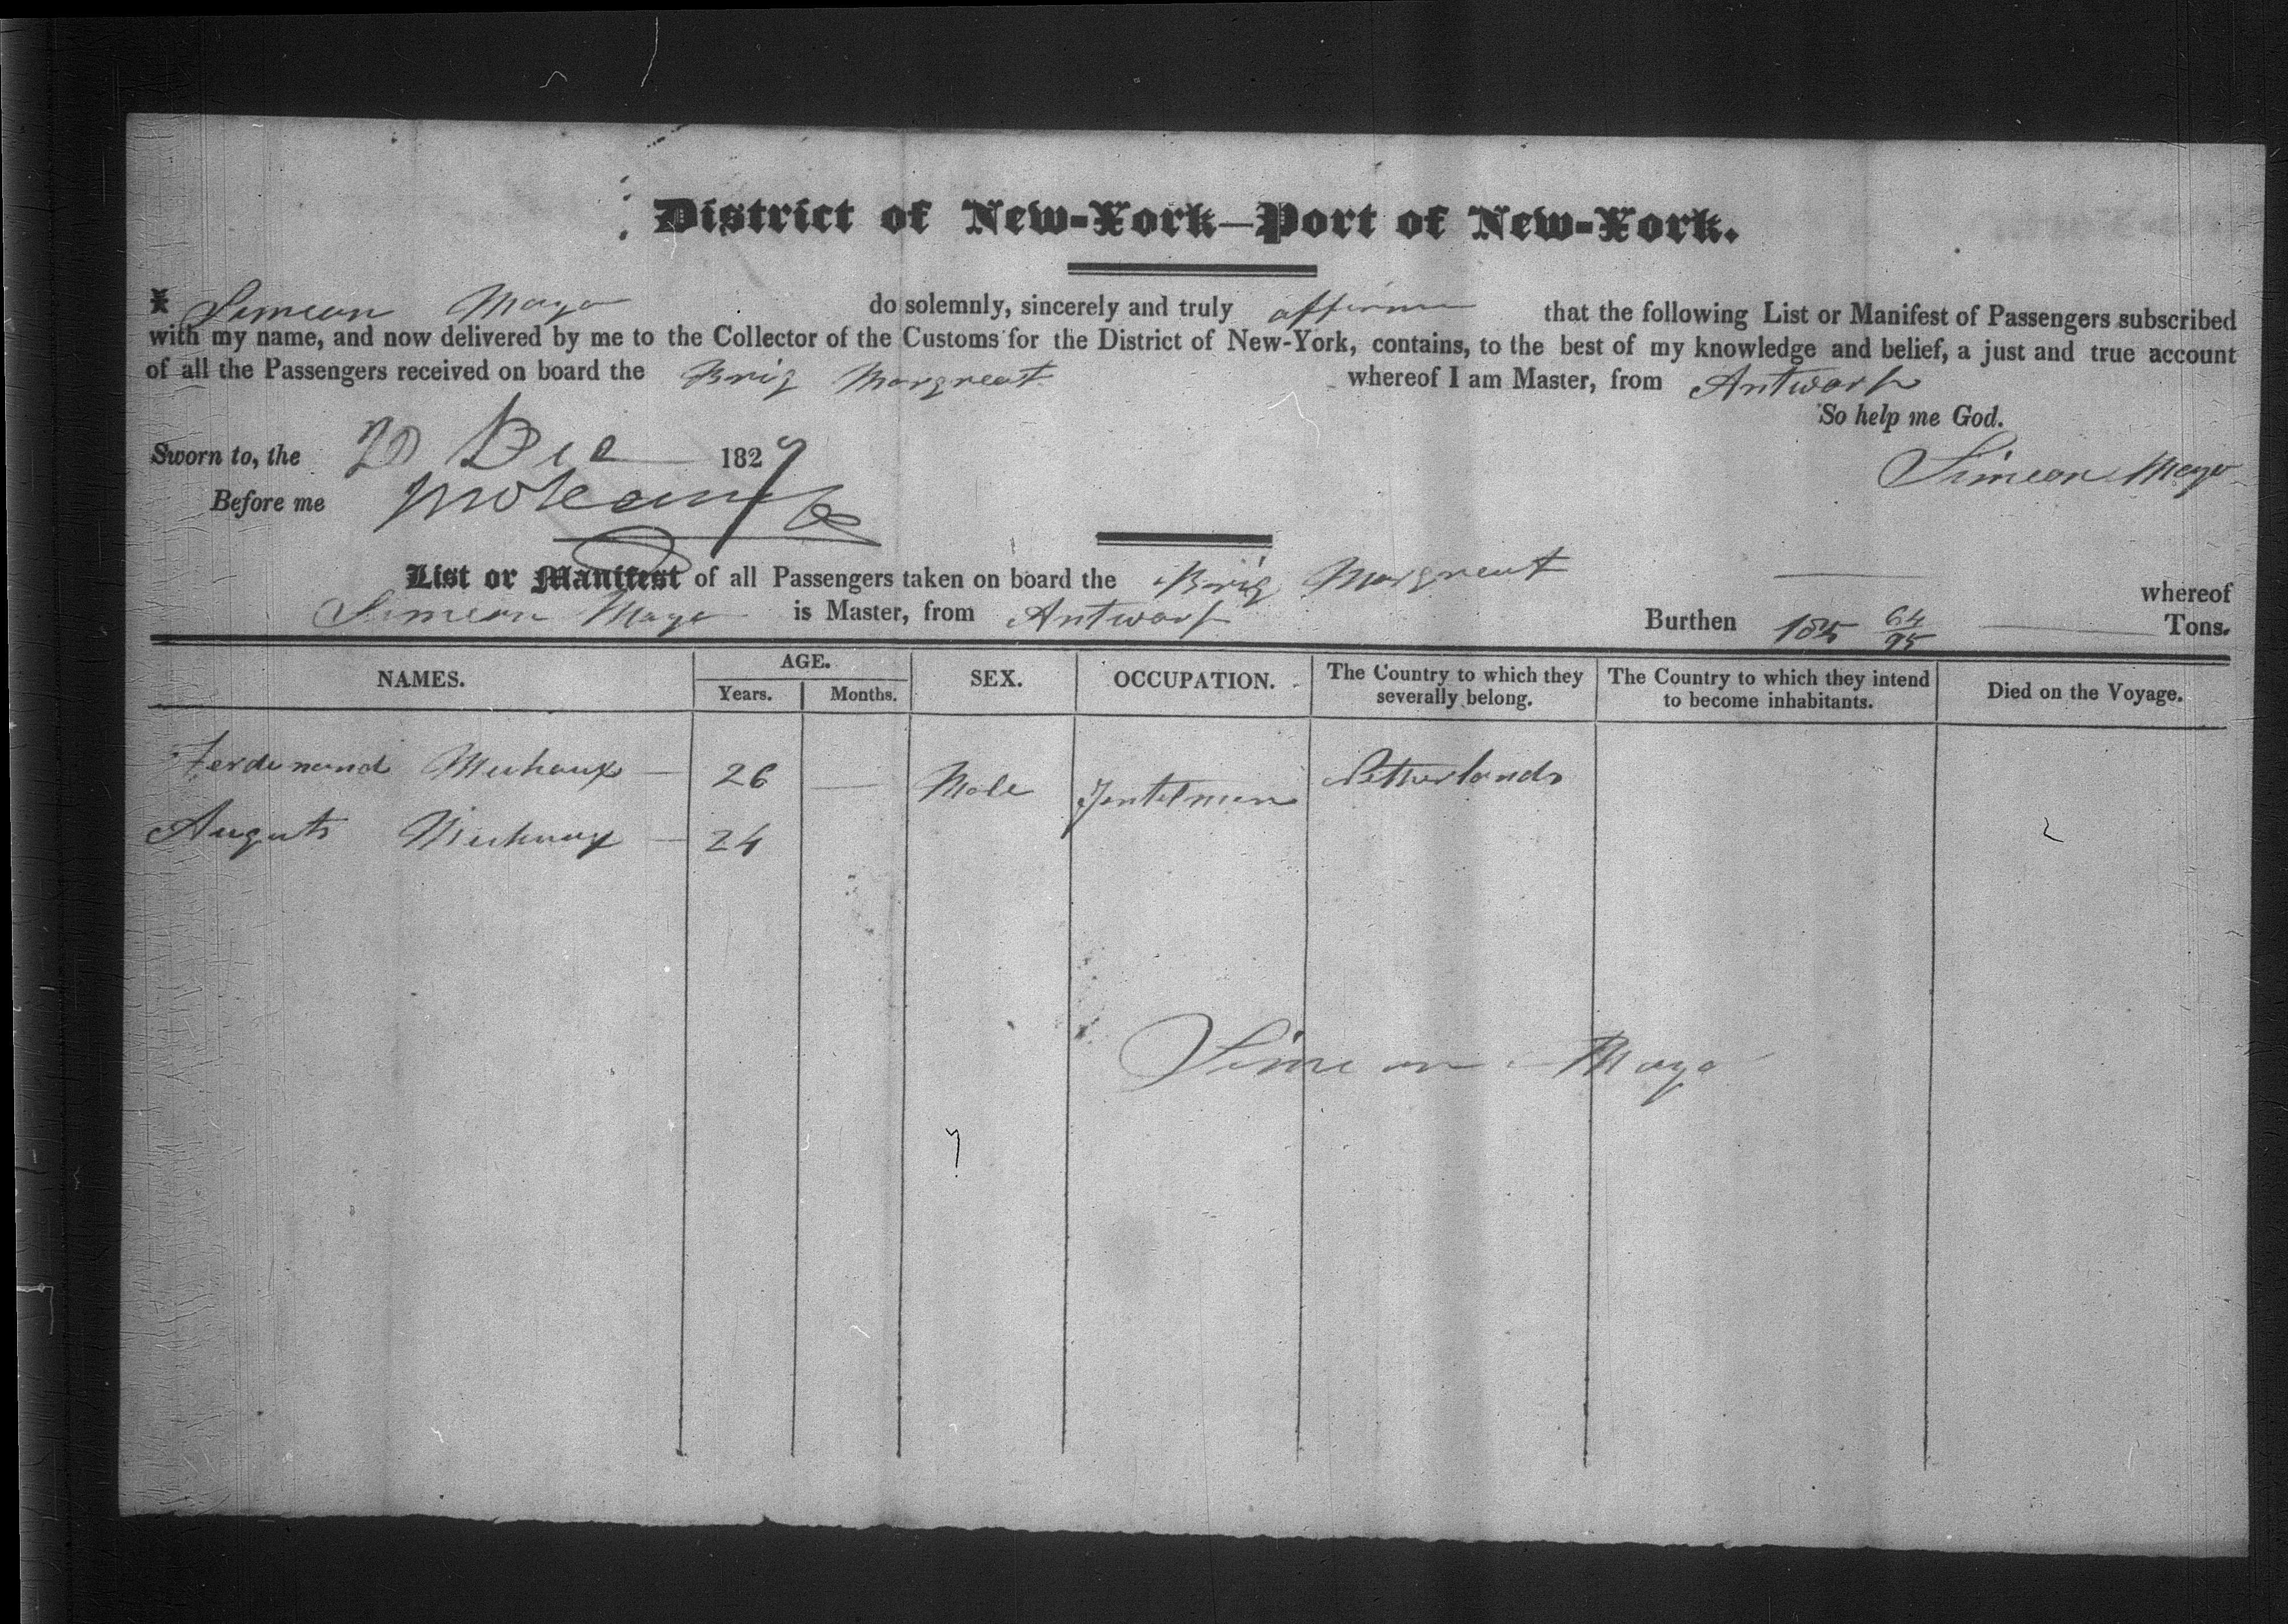 District of New-York—Port of New-York.
I Simeon Mayo do solemnly, sincerely and truly affirm that the following List or Manifest of Passengers subscribed
with my name, and now delivered by me to the Collector of the Customs for the District of New-York, contains, to the best of my knowledge and belief, a just and true account
of all the Passengers received on board the Brig Margreat whereof I am Master, from Antwarp
So help me God.
Sworn to, the 20 Dec 1829 Simeon Mayo
Before me
List or Manifest of all Passengers taken on board the Brig Margreat whereof
Simeon Mayo is Master, from Antwarp Burthen 185 64/95 Tons.
NAMES. AGE. Years. Months. SEX. OCCUPATION. The Country to which they severally belong. The Country to which they intend to become inhabitants. Died on the Voyage.
Ferdinand 26 Male Jentelmen Netherlands
Augusts 24
Simeon Mayo